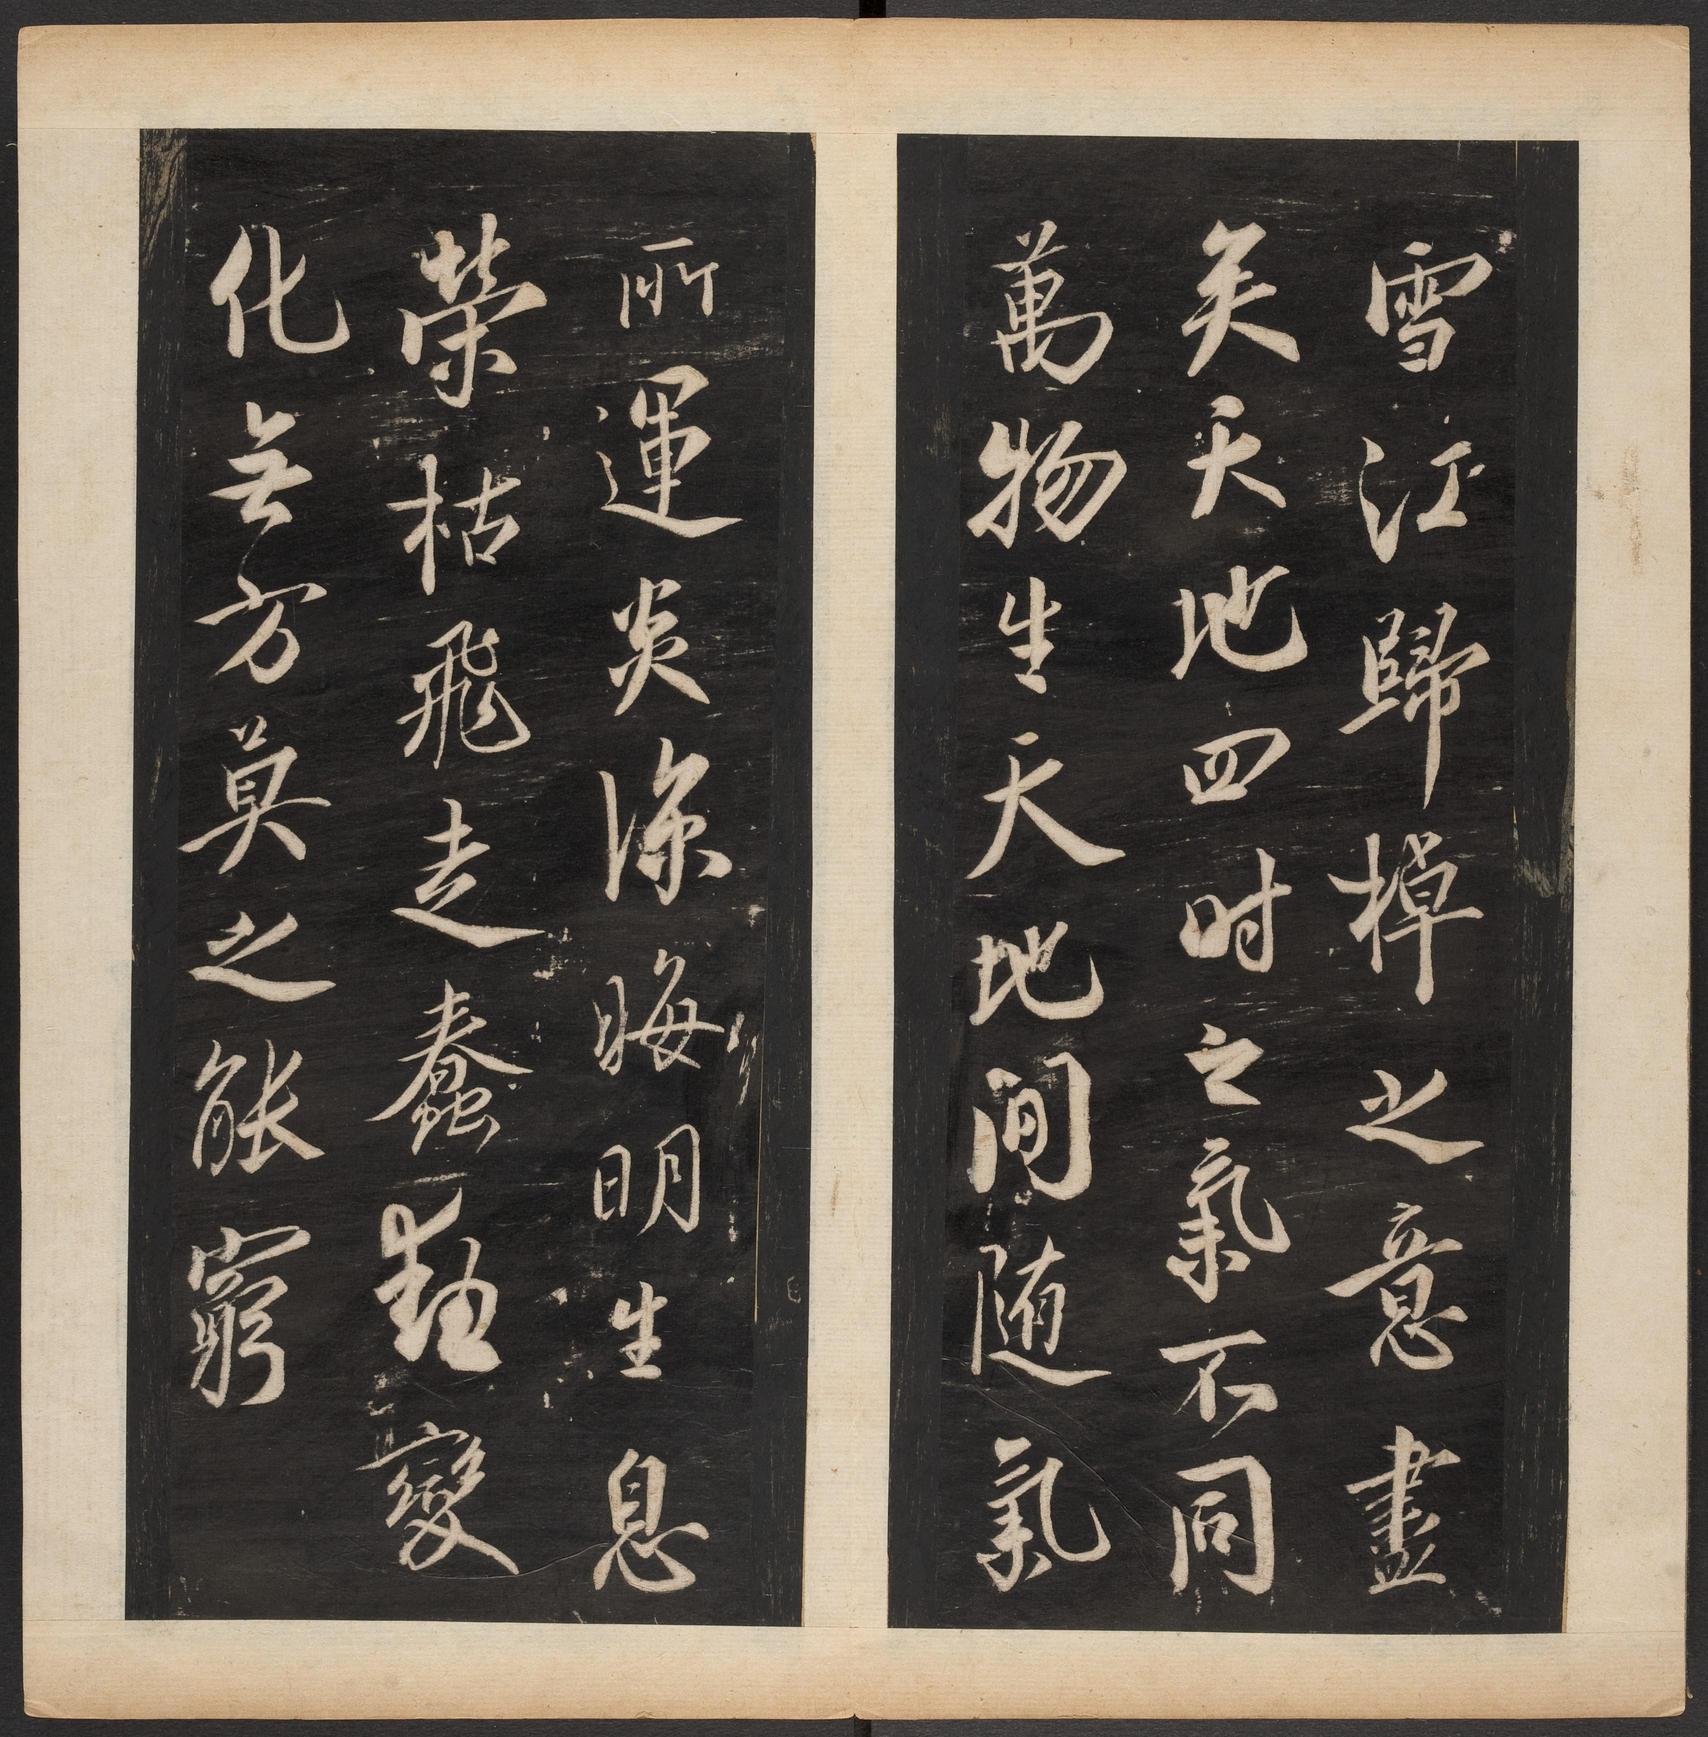 雪江歸棹之意盡
矣天地四時之氣不同
萬物生天地間随氣
所運炎涼晦明生息
榮枯飛走蠢動變
化無方莫之能窮